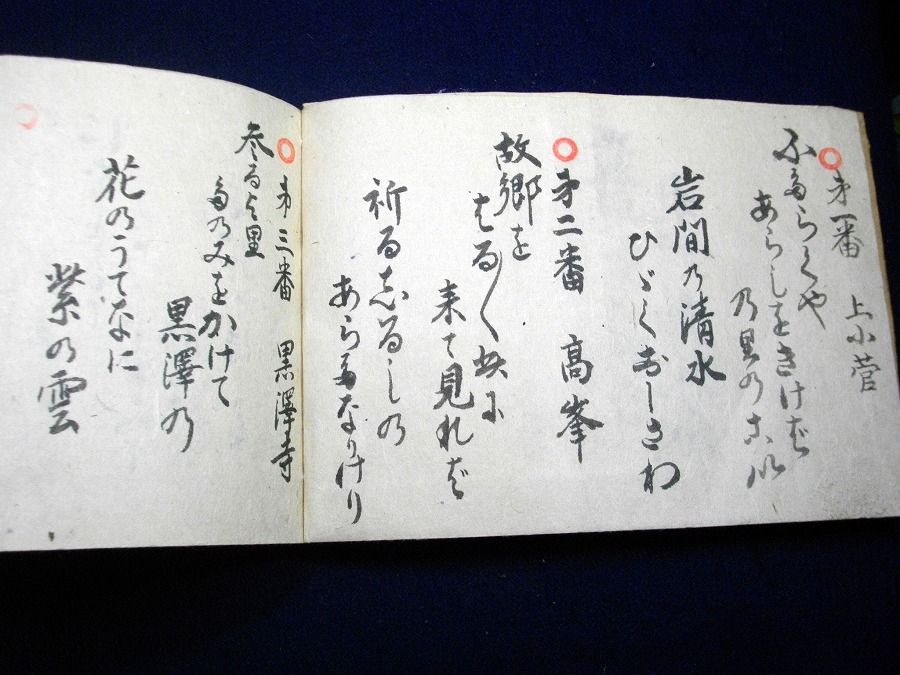 㐧一番 上小菅
ふだらくや
あらしをきけば
乃里のこゑ
岩間乃清水
ひゞく
㐧二番 高峯
故郷を
はる〴〵
来て見れば
祈るしるしの
あらたなりけり
㐧三番 黒澤寺
参るより
たのみをかけて
黒澤乃
花のうてなに
紫の雲